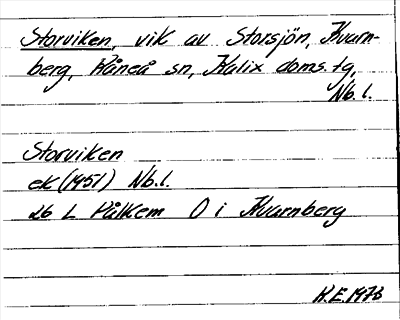 Storviken, vik av Storsjön, Kvarn-
berg, Råneå sn, Kalix doms.tg,
Nb.l.
Storviken
ek (1951) Nb.l.
26 L Pålkem O i Kvarnberg
K.E. 1973